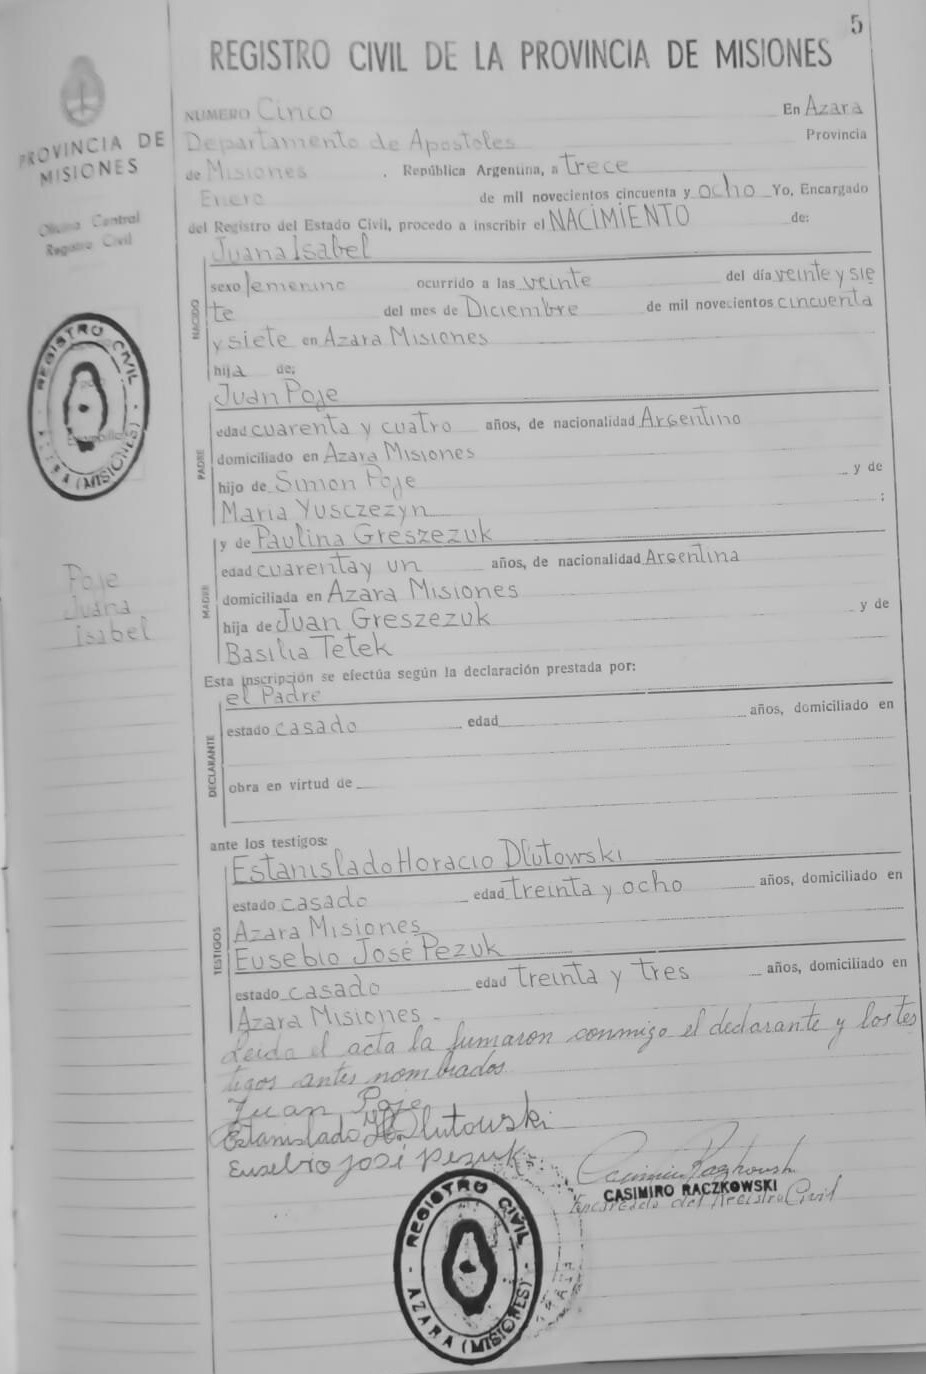 5
REGISTRO CIVIL DE LA PROVINCIA DE MISIONES
PROVINCIA DE
MISIONES
Oficina Central
Registro Civil
REGISTRO CIVIL
AZARA (MISIONES)
Poje
Juana
isabel
NUMERO Cinco En Azara
Departamento de Apostoles Provincia
de Misiones , República Argentina, a trece
Enero de mil novecientos cincuenta y ocho Yo, Encargado
del Registro del Estado Civil, procedo a inscribir el NACIMIENTO de:
Juana Isabel
NACIDO
sexo femenino ocurrido a las veinte del día veinte y sie
te del mes de Diciembre de mil novecientos cincuenta
y siete en Azara Misiones
hija de;
PADRE
Juan Poje
edad cuarenta y cuatro años, de nacionalidad Argentino
domiciliado en Azara Misiones
hijo de Simon Poje y de
Maria Yusczezyn ;
MADRE
y de Paulina Greszezuk
edad cuarenta y un años, de nacionalidad Argentina
domiciliada en Azara Misiones
hija de Juan Greszezuk y de
Basilia Tetek
Esta inscripción se efectúa según la declaración prestada por:
DECLARANTE
el Padre
estado casado edad años, domiciliado en
obra en virtud de
ante los testigos:
TESTIGOS
Estanislado Horacio Dlutowski
estado casado edad treinta y ocho años, domiciliado en
Azara Misiones
Eusebio José Pezuk
estado casado edad treinta y tres años, domiciliado en
Azara Misiones -
Leida el acta la fumaron conmigo el declarante y los tes
tigos antes nombrados
Juan Poje
Estanislado H. Dlutowski
Eusebio José Pezuk
Casimiro Raczkowski
CASIMIRO RACZKOWSKI
Encargado del Registro Civil
REGISTRO CIVIL
AZARA (MISIONES)